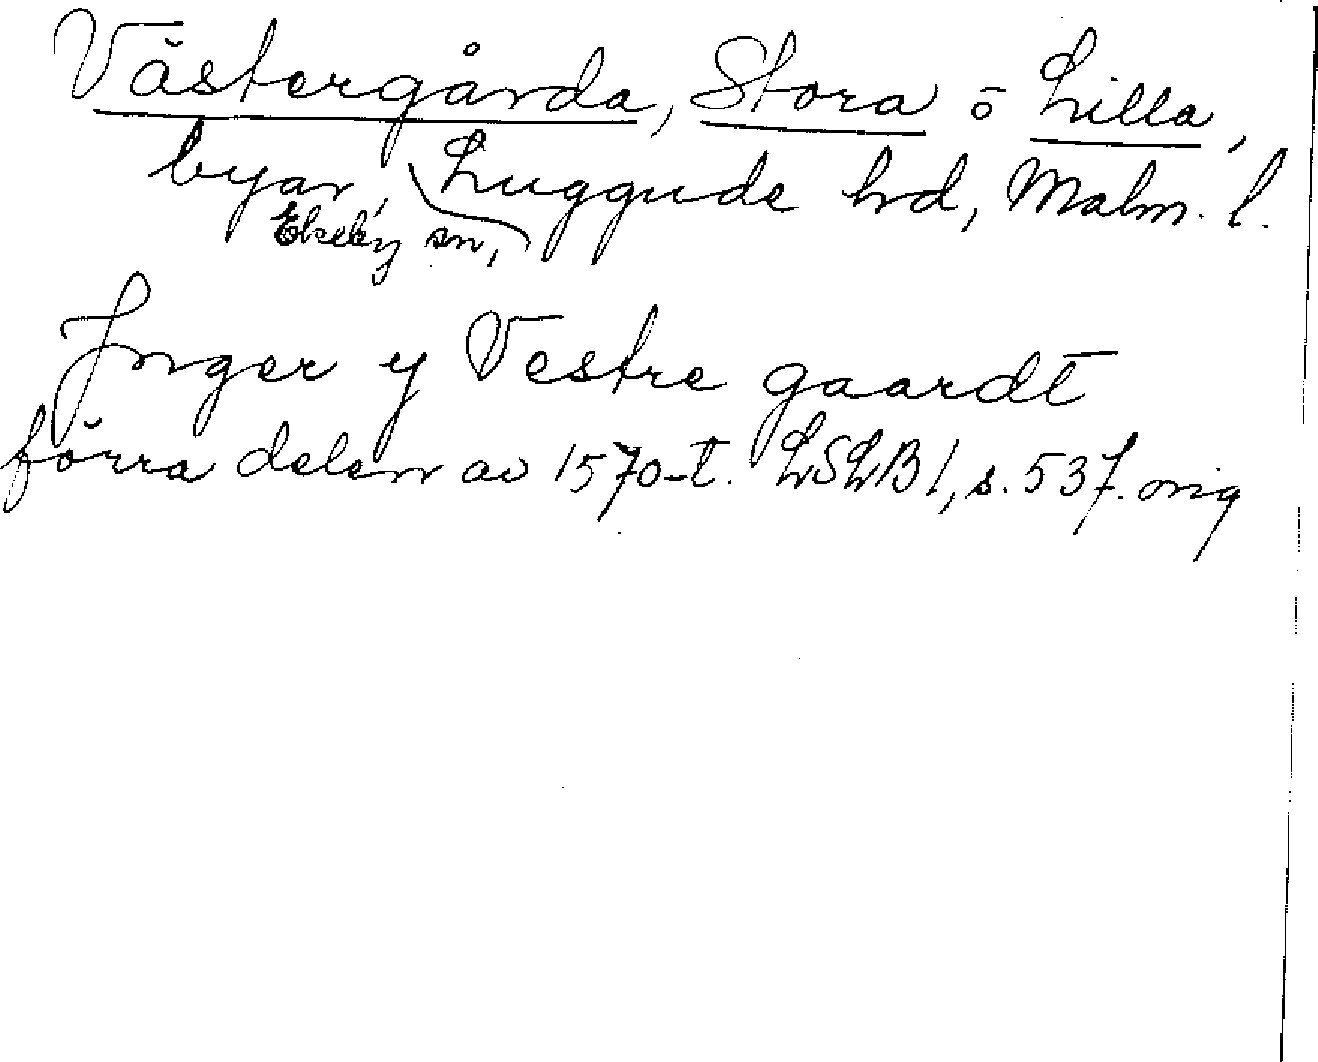 Västergårda, Stora o Lilla,
byar, Luggude hd, Malm. l.
Ekeby sn,
Jnger y Vestre gaardt
förra delen av 1570-t. LSLB 1, s. 537. orig